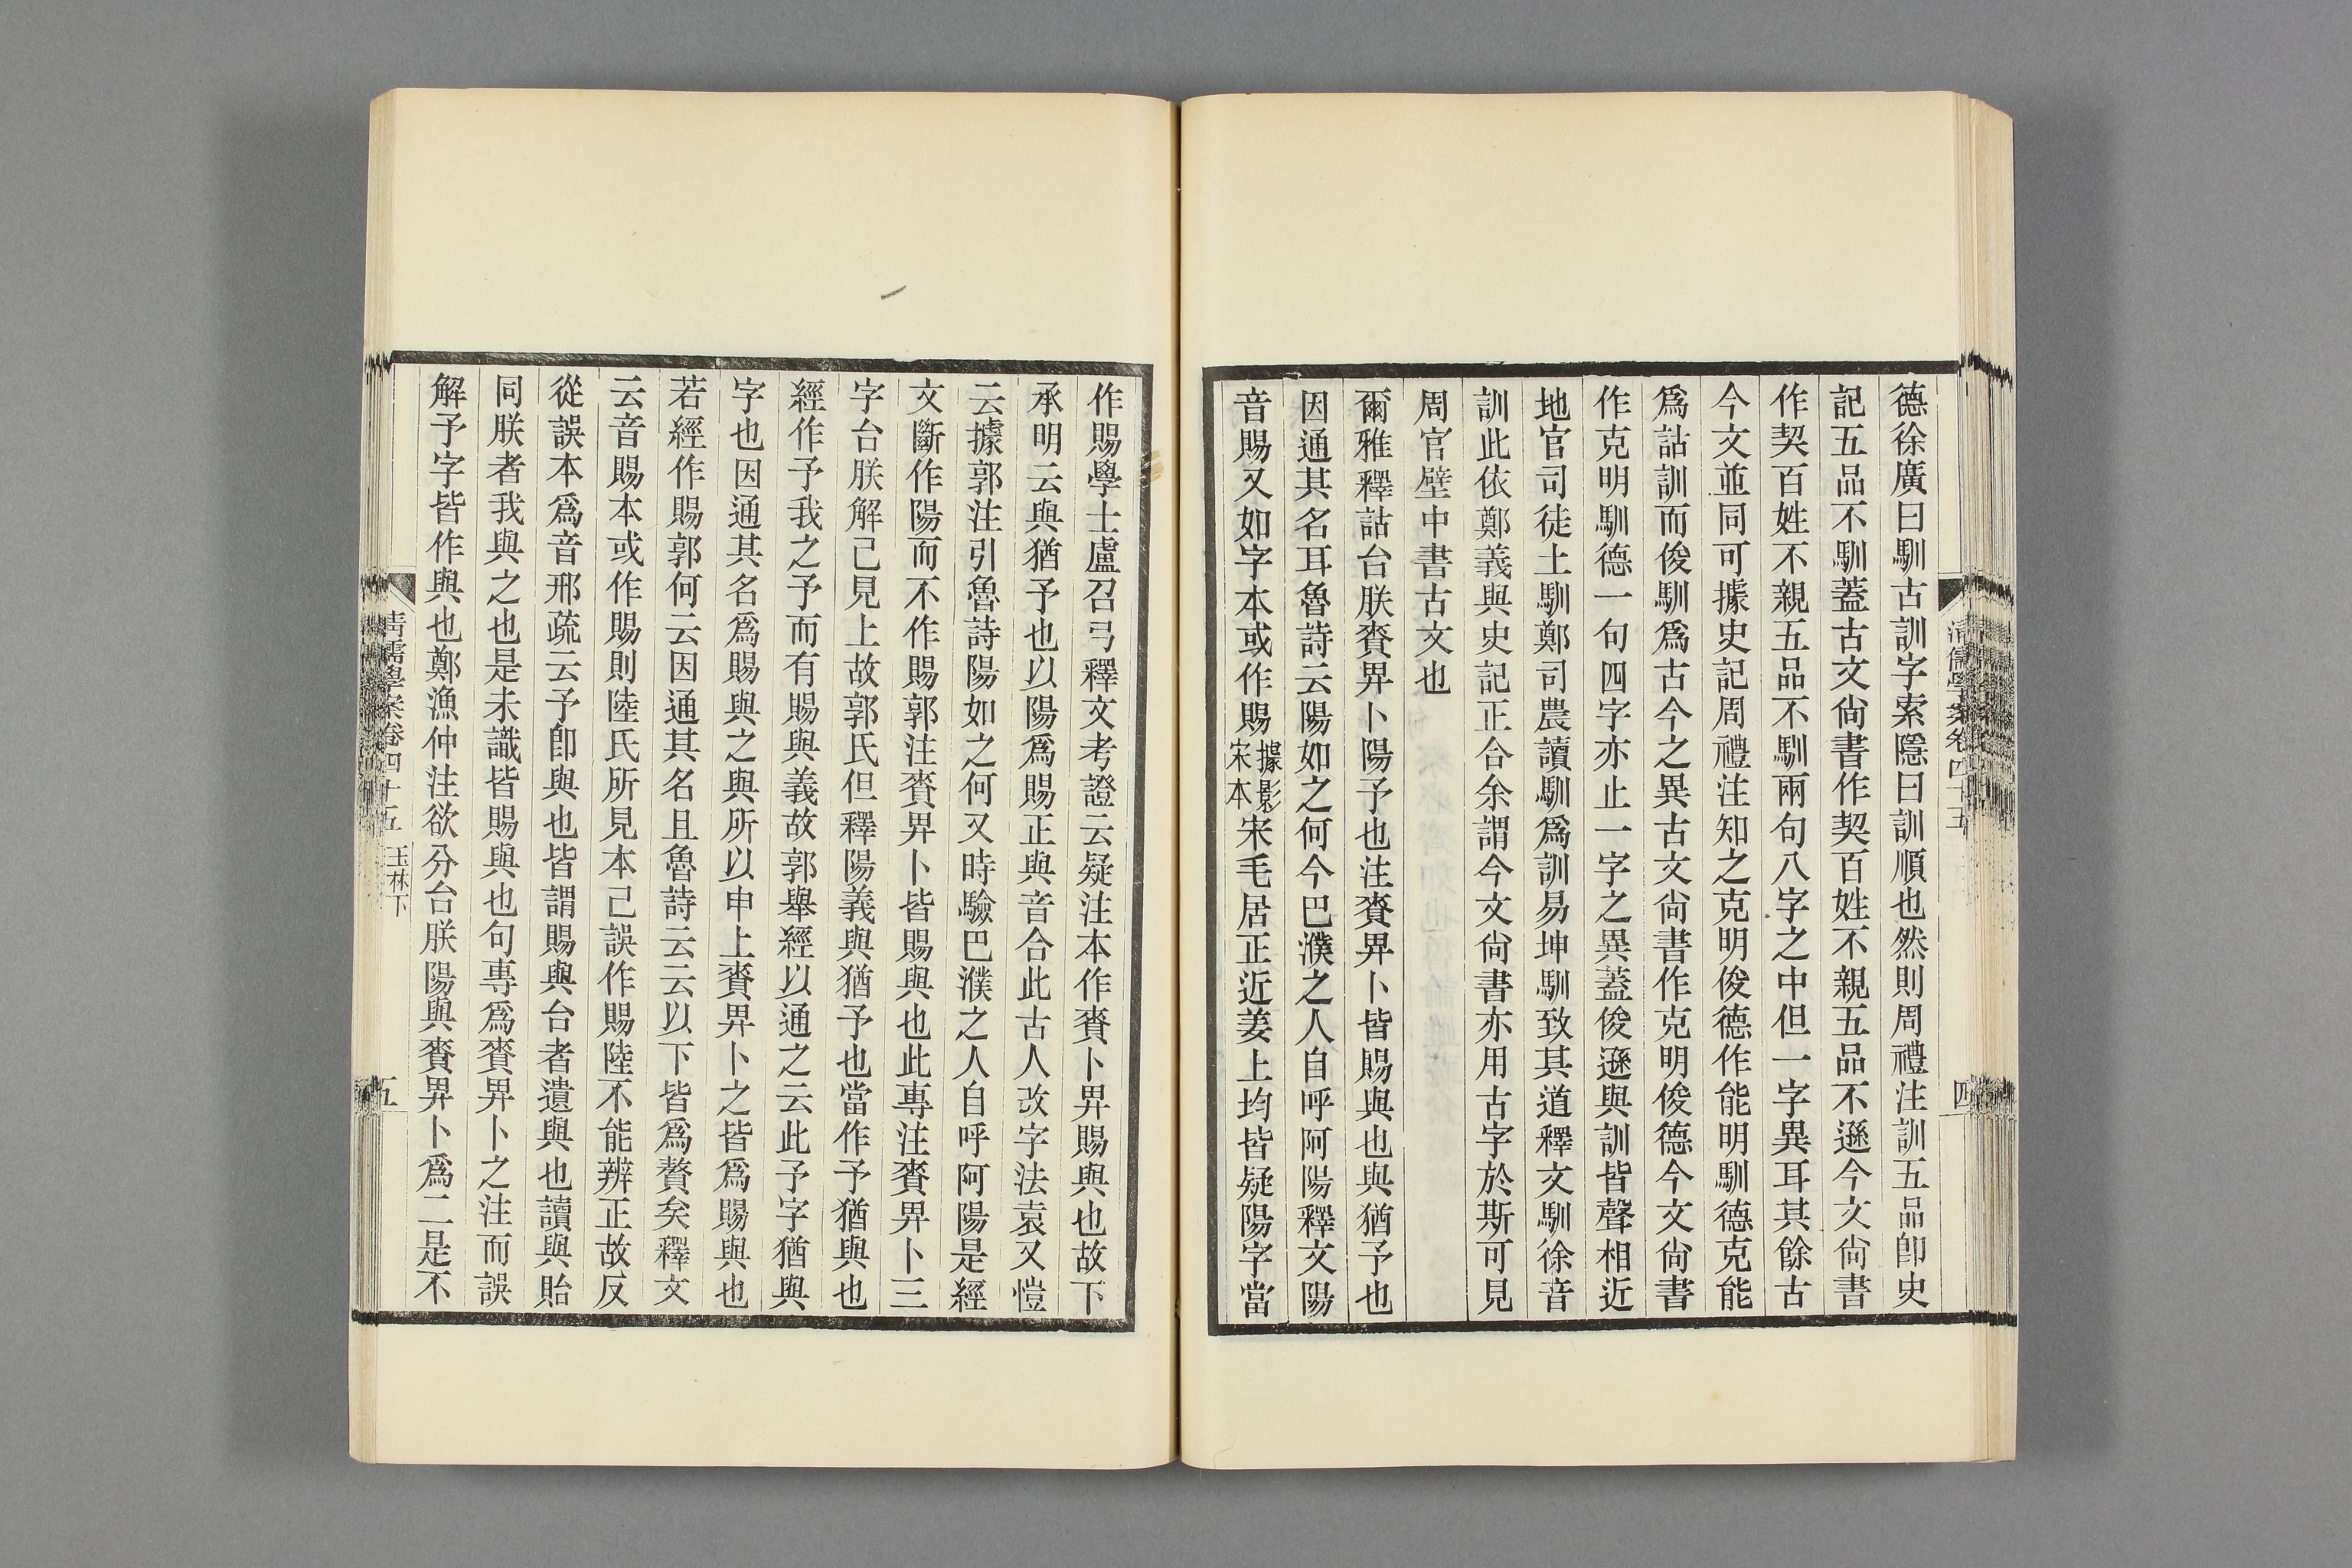 清儒學案卷四十五
四
德徐廣曰馴古訓字索隱曰訓順也然則周禮注訓五品卽史
記五品不馴蓋古文尙書作契百姓不親五品不遜今文尙書
作契百姓不親五品不馴兩句八字之中但一字異耳其餘古
今文並同可據史記周禮注知之克明俊德作能明馴德克能
爲詁訓而俊馴爲古今之異古文尙書作克明俊德今文尙書
作克明馴德一句四字亦止一字之異蓋俊遜與訓皆聲相近
地官司徒土馴鄭司農讀馴爲訓易坤馴致其道釋文馴徐音
訓此依鄭義與史記正合余謂今文尙書亦用古字於斯可見
周官壁中書古文也
爾雅釋詁台朕賚畀卜陽予也注賚畀卜皆賜與也與猶予也
因通其名耳魯詩云陽如之何今巴濮之人自呼阿陽釋文陽
音賜又如字本或作賜據影宋本宋毛居正近姜上均皆疑陽字當
作賜學士盧召弓釋文考證云疑注本作賚卜畀賜與也故下
承明云與猶予也以陽爲賜正與音合此古人改字法袁又愷
云據郭注引魯詩陽如之何又時驗巴濮之人自呼阿陽是經
文斷作陽而不作賜郭注賚畀卜皆賜與也此專注賚畀卜三
字台朕解己見上故郭氏但釋陽義與猶予也當作予猶與也
經作予我之予而有賜與義故郭舉經以通之云此予字猶與
字也因通其名爲賜與之與所以申上賚畀卜之皆爲賜與也
若經作賜郭何云因通其名且魯詩云云以下皆爲贅矣釋文
云音賜本或作賜則陸氏所見本己誤作賜陸不能辨正故反
從誤本爲音邢疏云予卽與也皆謂賜與台者遺與也讀與貽
同朕者我與之也是未識皆賜與也句專爲賚畀卜之注而誤
解予字皆作與也鄭漁仲注欲分台朕陽與賚畀卜爲二是不
清儒學案卷四十五 玉林下
五